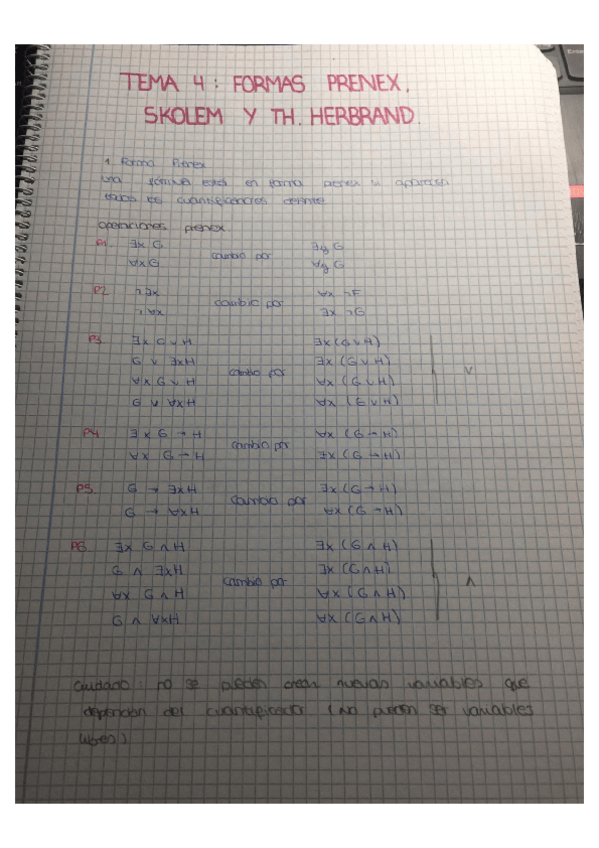 TEMA 4 : FORMAS PRENEX,
SKOLEM Y TH. HERBRAND.
1. Forma Prenex
Una fórmula está en forma prenex si aparecen
todos los cuantificadores delante
operaciones prenex.
P1. ∃x G cambio por ∃y G
∀x G ∀y G
P2 ¬∃x cambio por ∀x ¬F
¬∀x ∃x ¬G
P3 ∃x G ∨ H ∃x (G ∨ H)
G ∨ ∃x H cambio por ∃x (G ∨ H) ∨
∀x G ∨ H ∀x (G ∨ H)
G ∨ ∀x H ∀x (G ∨ H)
P4 ∃x G → H cambio por ∀x (G → H)
∀x G → H ∃x (G → H)
P5. G → ∃x H cambio por ∃x (G → H)
G → ∀x H ∀x (G → H)
P6. ∃x G ∧ H ∃x (G ∧ H)
G ∧ ∃x H cambio por ∃x (G ∧ H) ∧
∀x G ∧ H ∀x (G ∧ H)
G ∧ ∀x H ∀x (G ∧ H)
Cuidado : no se pueden crear nuevas variables que
dependían del cuantificador (no pueden ser variables
libres)